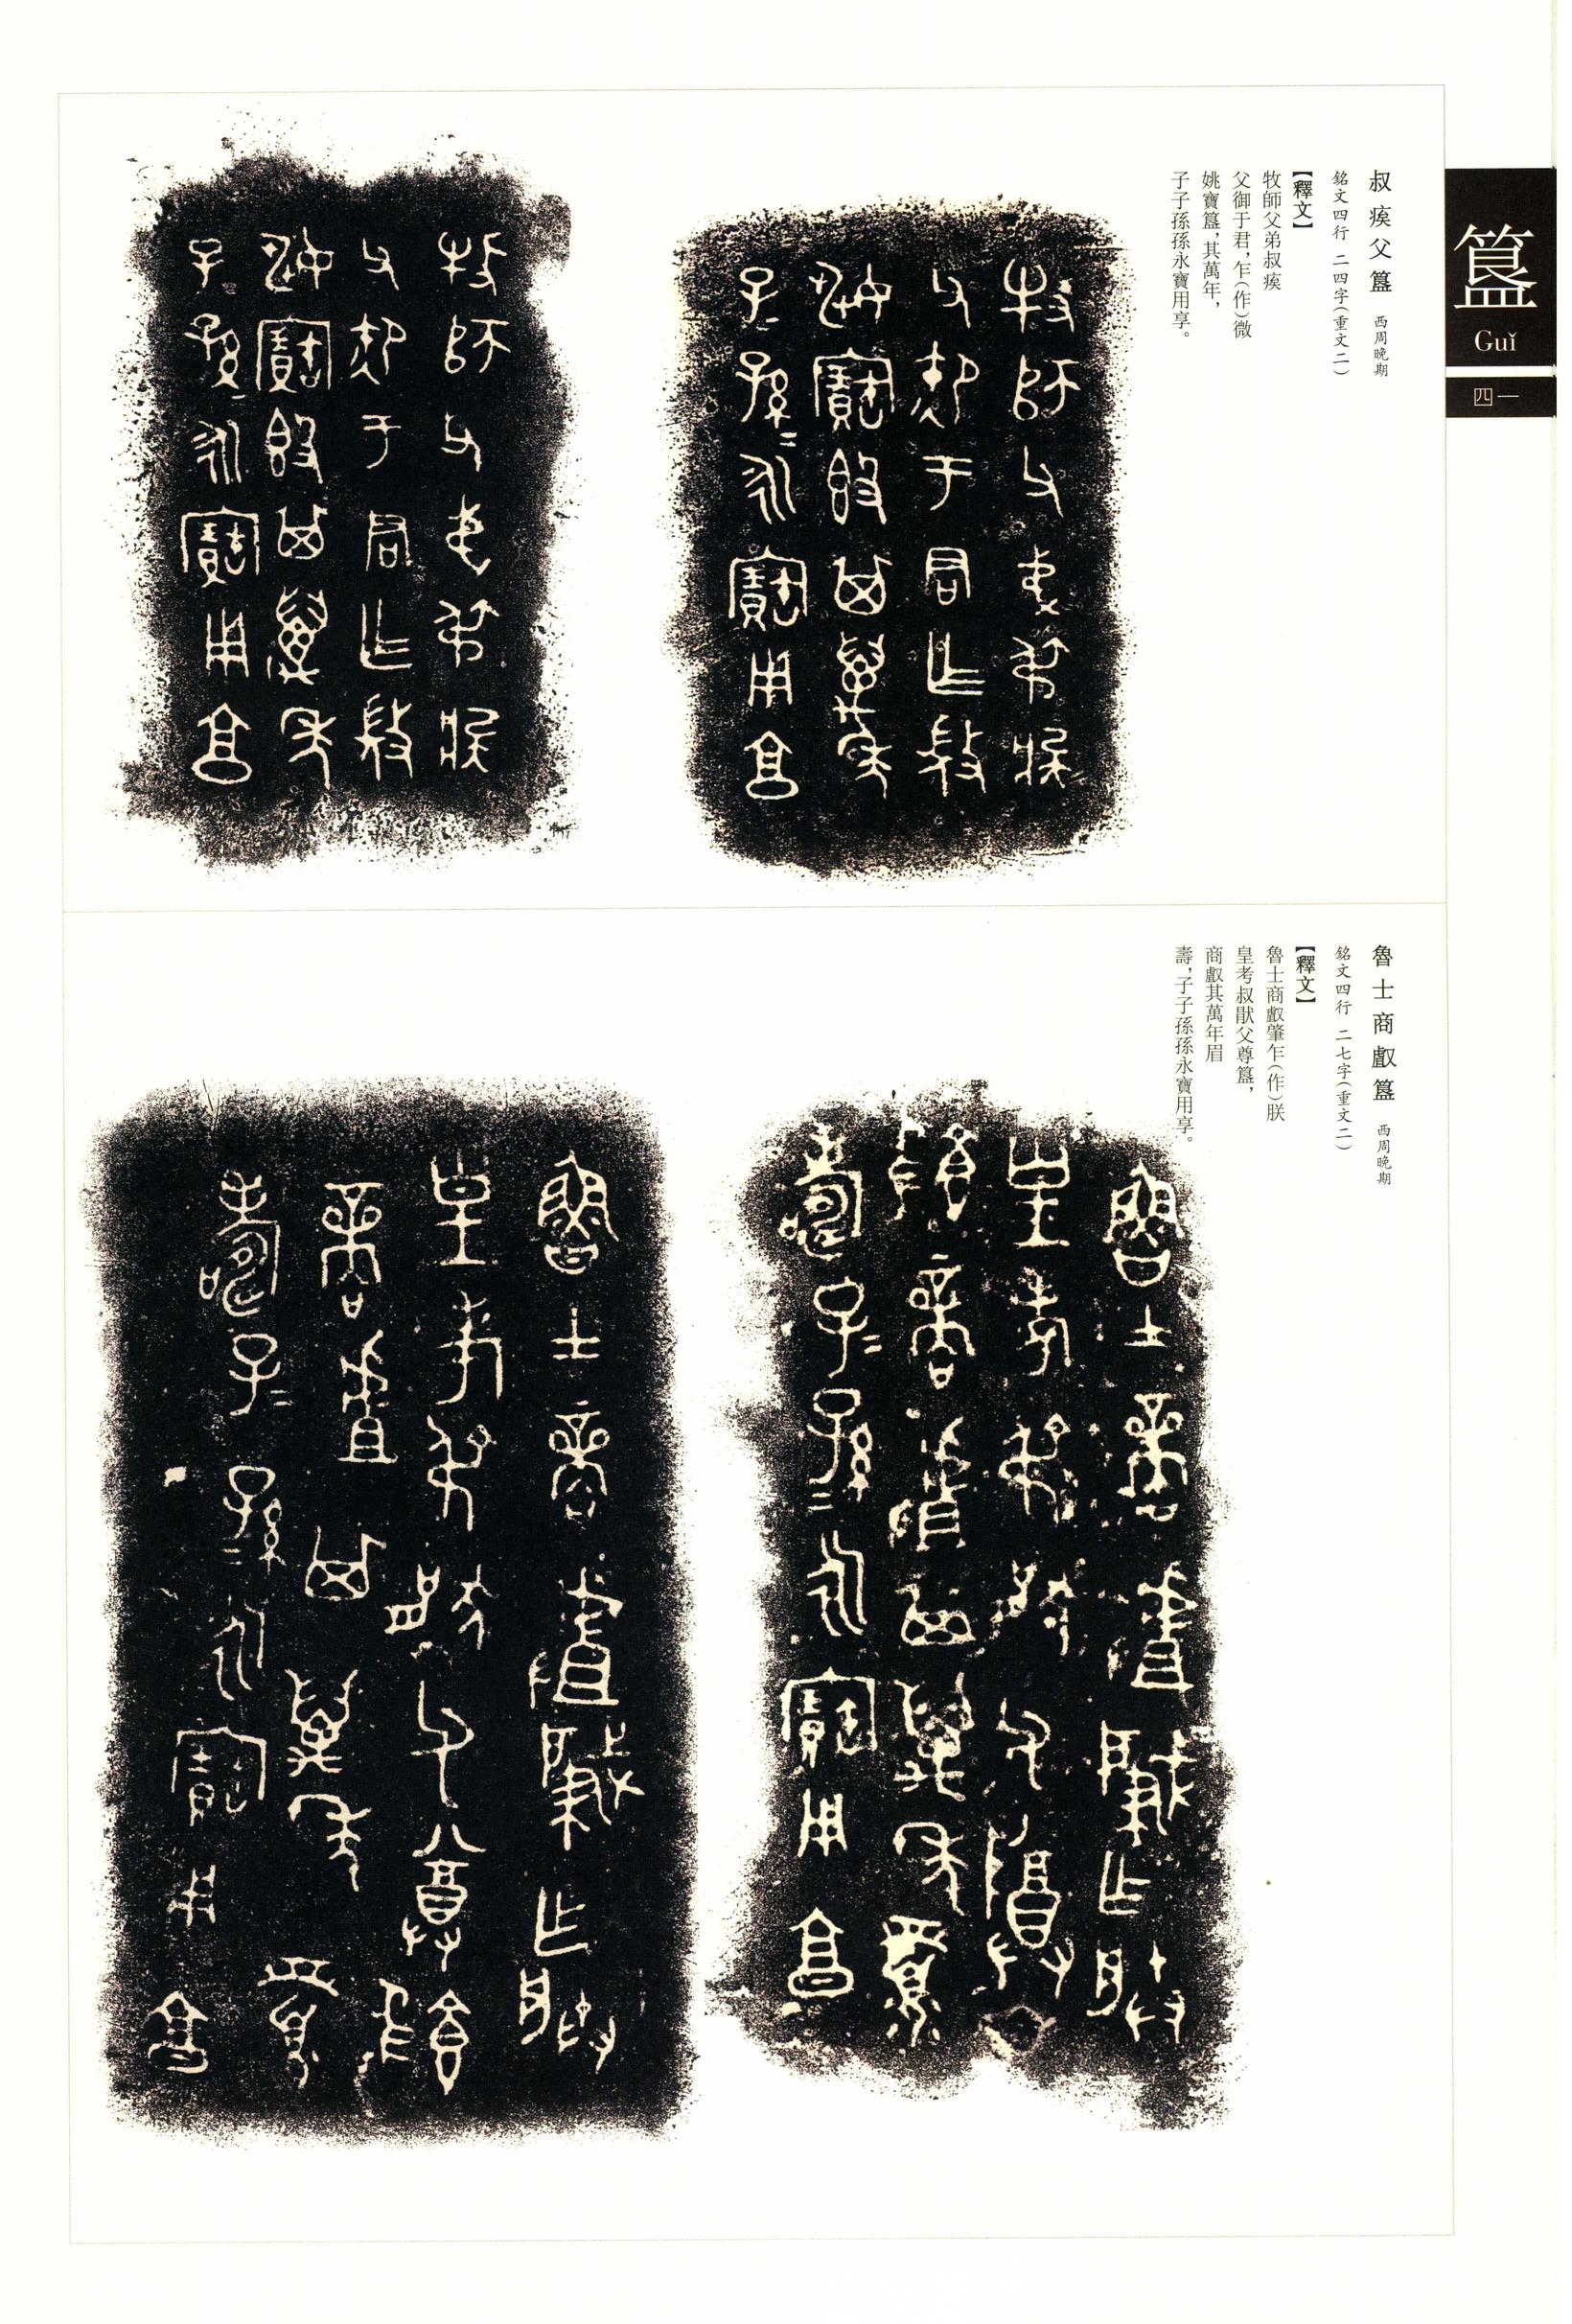 簋
Guǐ
四一
叔㾭父簋 西周晚期
銘文四行 二四字(重文二)
【釋文】
牧師父弟叔㾭
父御于君,乍(作)微
姚寶簋,其萬年,
子子孫孫永寶用享。
魯士商䖒簋 西周晚期
銘文四行 二七字(重文二)
【釋文】
魯士商䖒肇乍(作)朕
皇考叔猒父尊簋,
商䖒其萬年眉
壽,子子孫孫永寶用享。